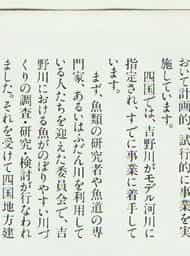 おいて計画的、試行的に事業を実
施しています。
四国では、吉野川がモデル河川に
指定され、すでに事業に着手して
います。
まず、魚類の研究者や魚道の専
門家、あるいはふだん川を利用して
いる人たちを迎えた委員会で、吉
野川における魚がのぼりやすい川づ
くりの調査・研究・検討が行なわれ
ました。それを受けて四国地方建